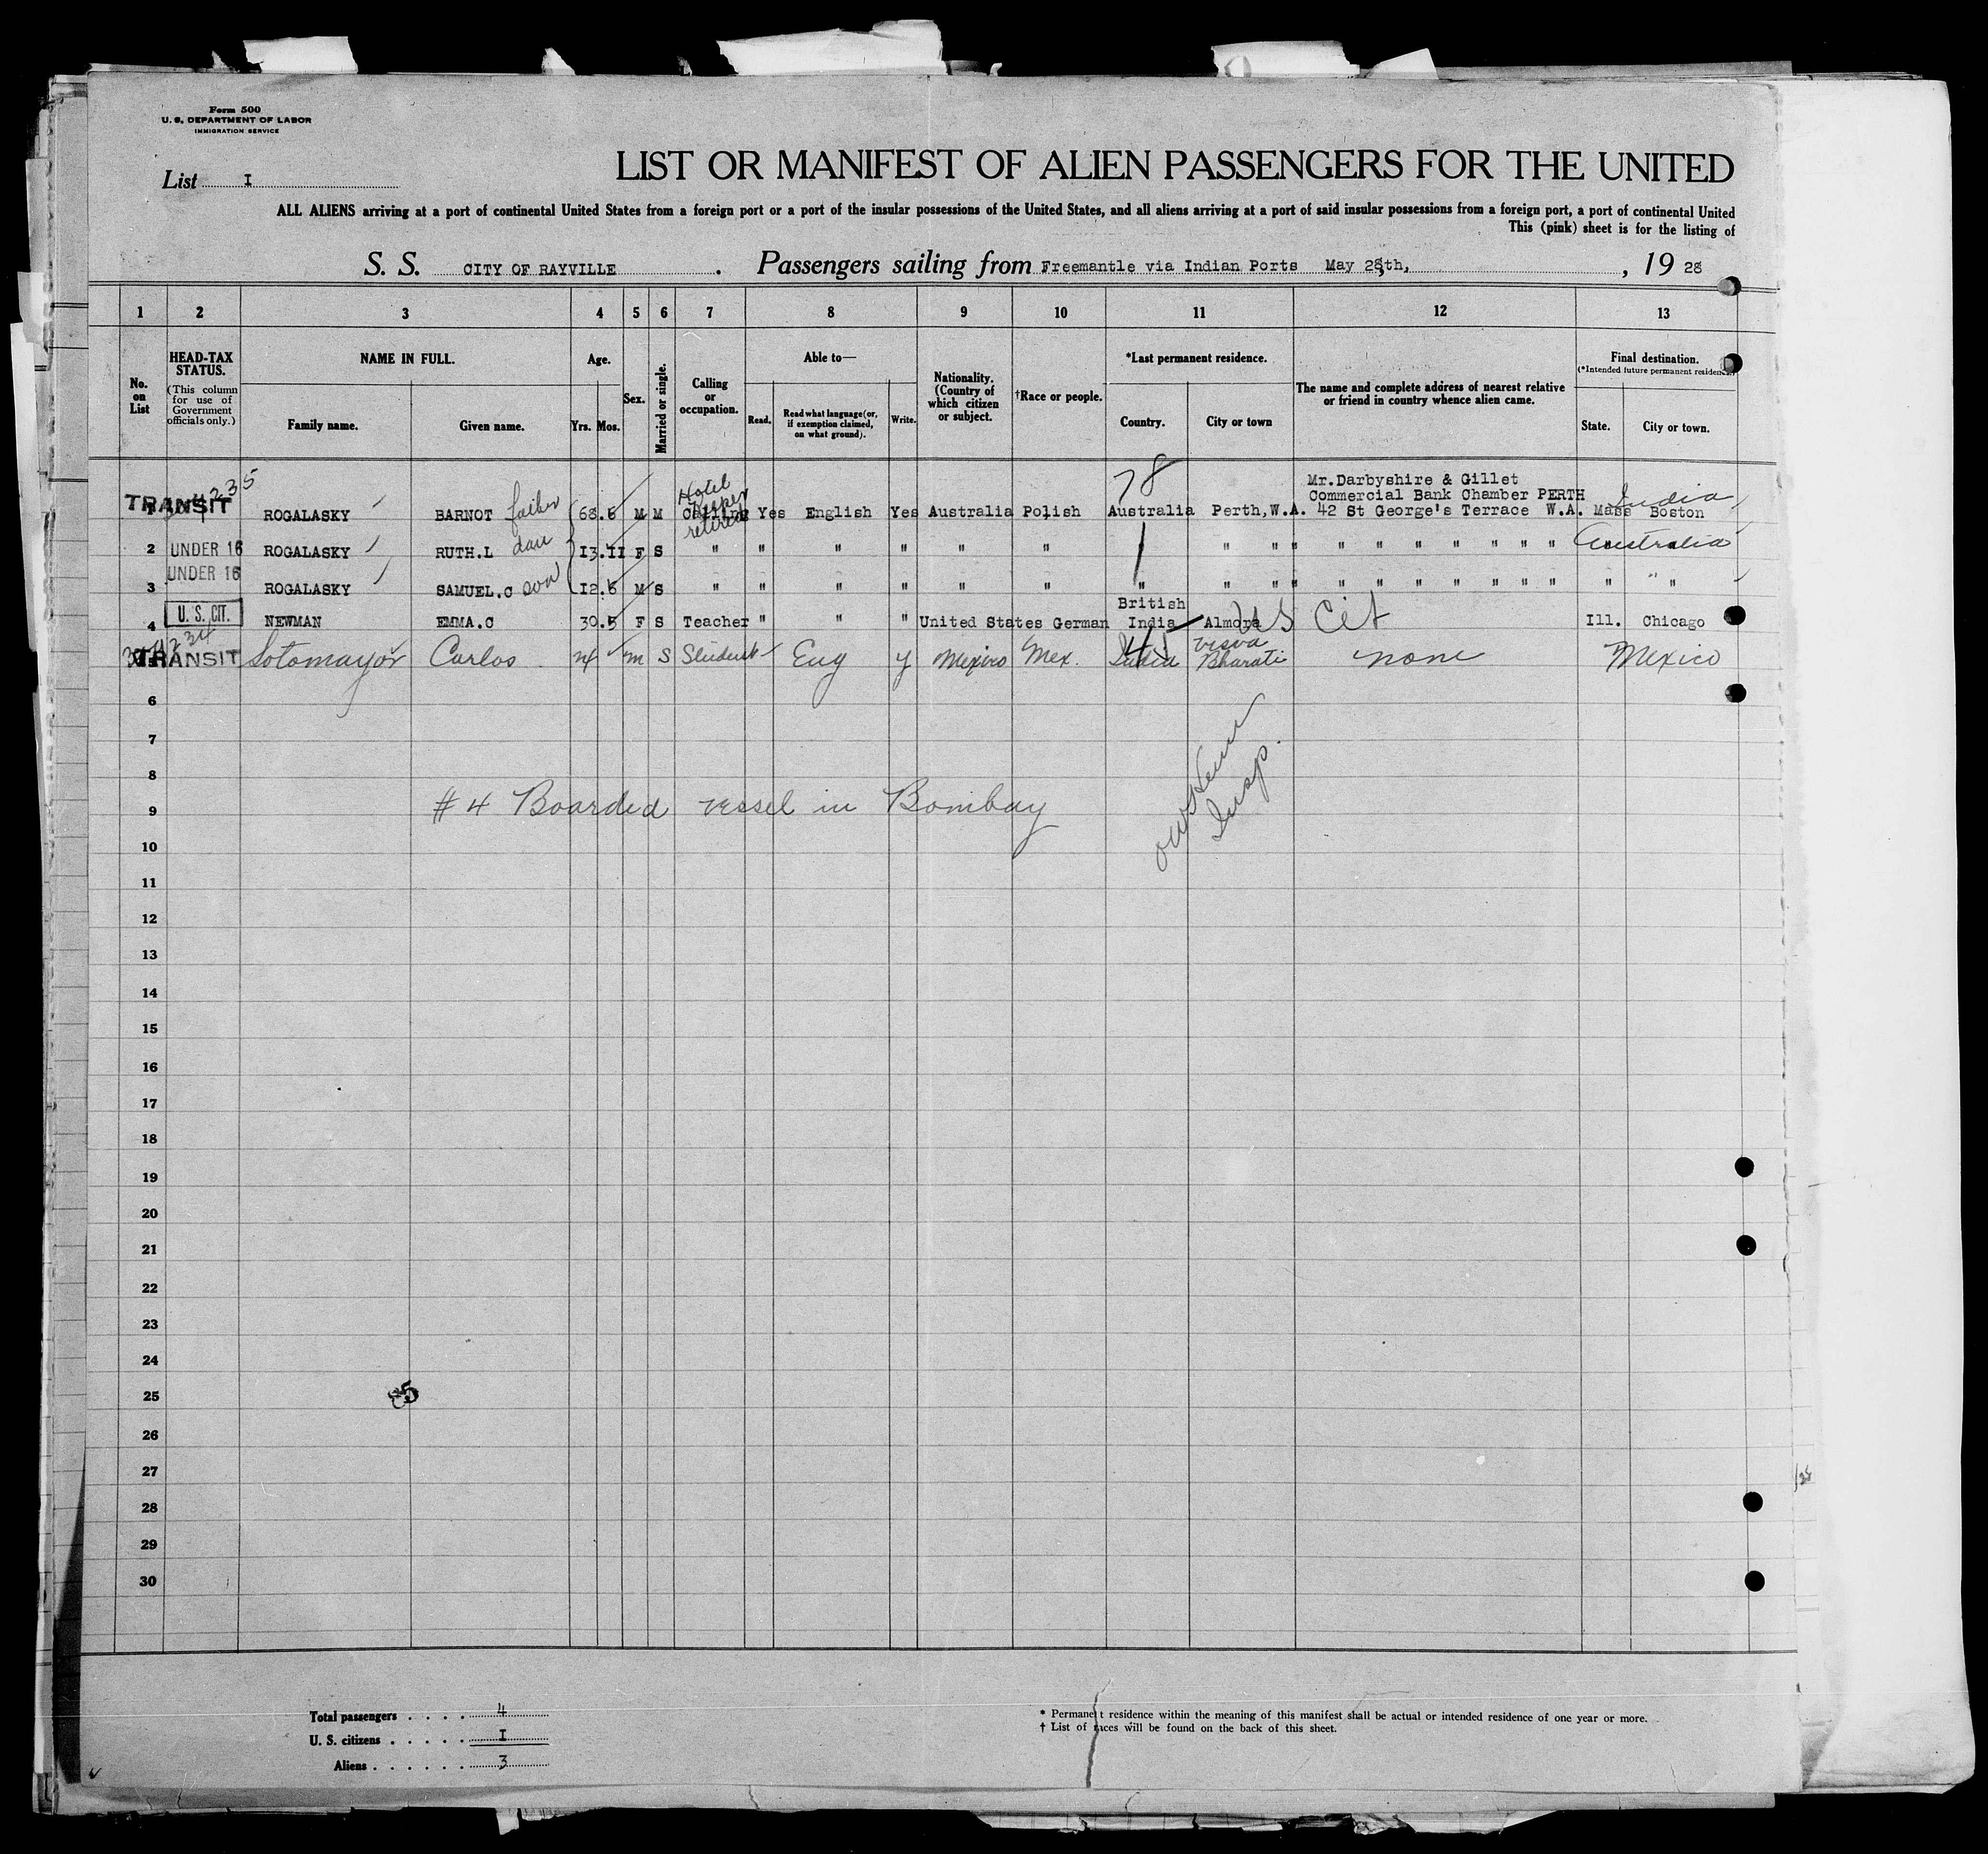 Form 500
U. S. DEPARTMENT OF LABOR
IMMIGRATION SERVICE
LIST OR MANIFEST OF ALIEN PASSENGERS FOR THE UNITED
List I
ALL ALIENS arriving at a port of continental United States from a foreign port or a port of the insular possessions of the United States, and all aliens arriving at a port of said insular possessions from a foreign port, a port of continental United
This (pink) sheet is for the listing of
S. S. CITY OF RAYVILLE . Passengers sailing from Freemantle via Indian Ports May 28th, , 19 28
1 2 3 4 5 6 7 8 9 10 11 12 13
No. on List
HEAD-TAX STATUS.
(This column for use of Government officials only.)
NAME IN FULL.
Family name. Given name.
Age.
Yrs. Mos.
Sex.
Married or single.
Calling or occupation.
Able to—
Read. Read what language (or, if exemption claimed, on what ground). Write.
Nationality. (Country of which citizen or subject.
†Race or people.
*Last permanent residence.
Country. City or town
The name and complete address of nearest relative or friend in country whence alien came.
Final destination.
(*Intended future permanent residence.)
State. City or town.
78
Mr.Darbyshire & Gillet
Hotel Commercial Bank Chamber PERTH India
TRANSIT 1 ROGALASKY BARNOT father 68.6 M M Keeper retired Yes English Yes Australia Polish Australia Perth,W.A. 42 St George's Terrace W.A. Mass Boston
2 UNDER 16 ROGALASKY RUTH.L dau 13.11 F S " " " " " " " " " " " " " " " " Australia
UNDER 16
3 ROGALASKY SAMUEL.C son 12.6 M S " " " " " " " " " " " " " " " " " " " "
British
4 U. S. CIT. NEWMAN EMMA.C 30.5 F S Teacher " " " United States German India Almora US Cit Ill. Chicago
TRANSIT Sotomayor Carlos m S Student Eng y Mexico Mex. India Visva Bharati none Mexico
6
7
8
9 #4 Boarded vessel in Bombay
Insp.
10
11
12
13
14
15
16
17
18
19
20
21
22
23
24
25 85
26
27
28
29
30
Total passengers . . . . 4
U. S. citizens . . . . . I
Aliens . . . . . . 3
* Permanent residence within the meaning of this manifest shall be actual or intended residence of one year or more.
† List of races will be found on the back of this sheet.